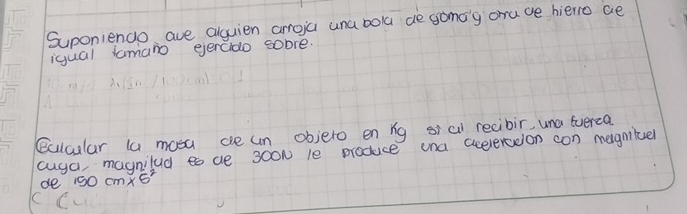 Suponiendo que alguien arroja una bola de goma y otra de hierro de
igual tamaño ejercido sobre.
Calcular la masa de un objeto en Kg si al recibir una fuerza
cuya magnitud es de 300N le produce una aceleración con magnitud
de 150 cm x s²